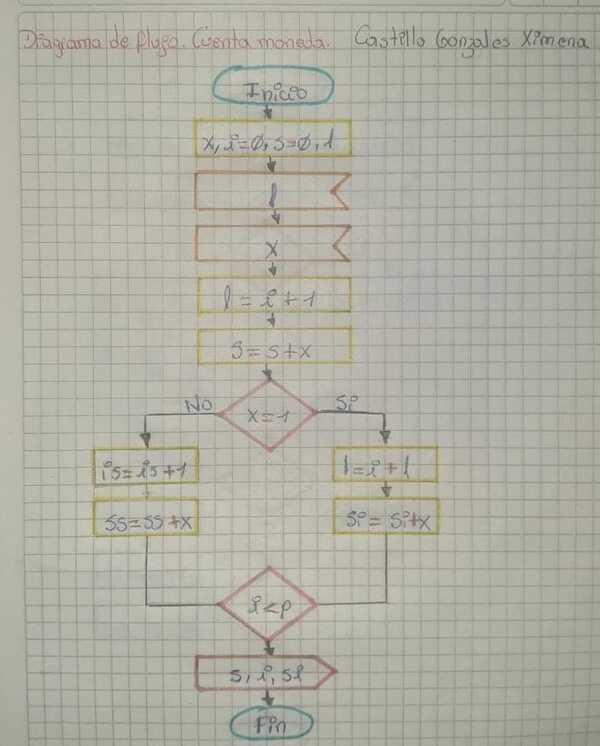 Diagrama de flujo. Cuenta moneda. Castillo Gonzales Ximena
Inicio
x, i=0, s=0, l
l
x
l = i + 1
s = s+x
x=1
No
Si
is = is+1
l=i+l
ss=ss+x
si = si+x
i<p
s, i, sl
Fin